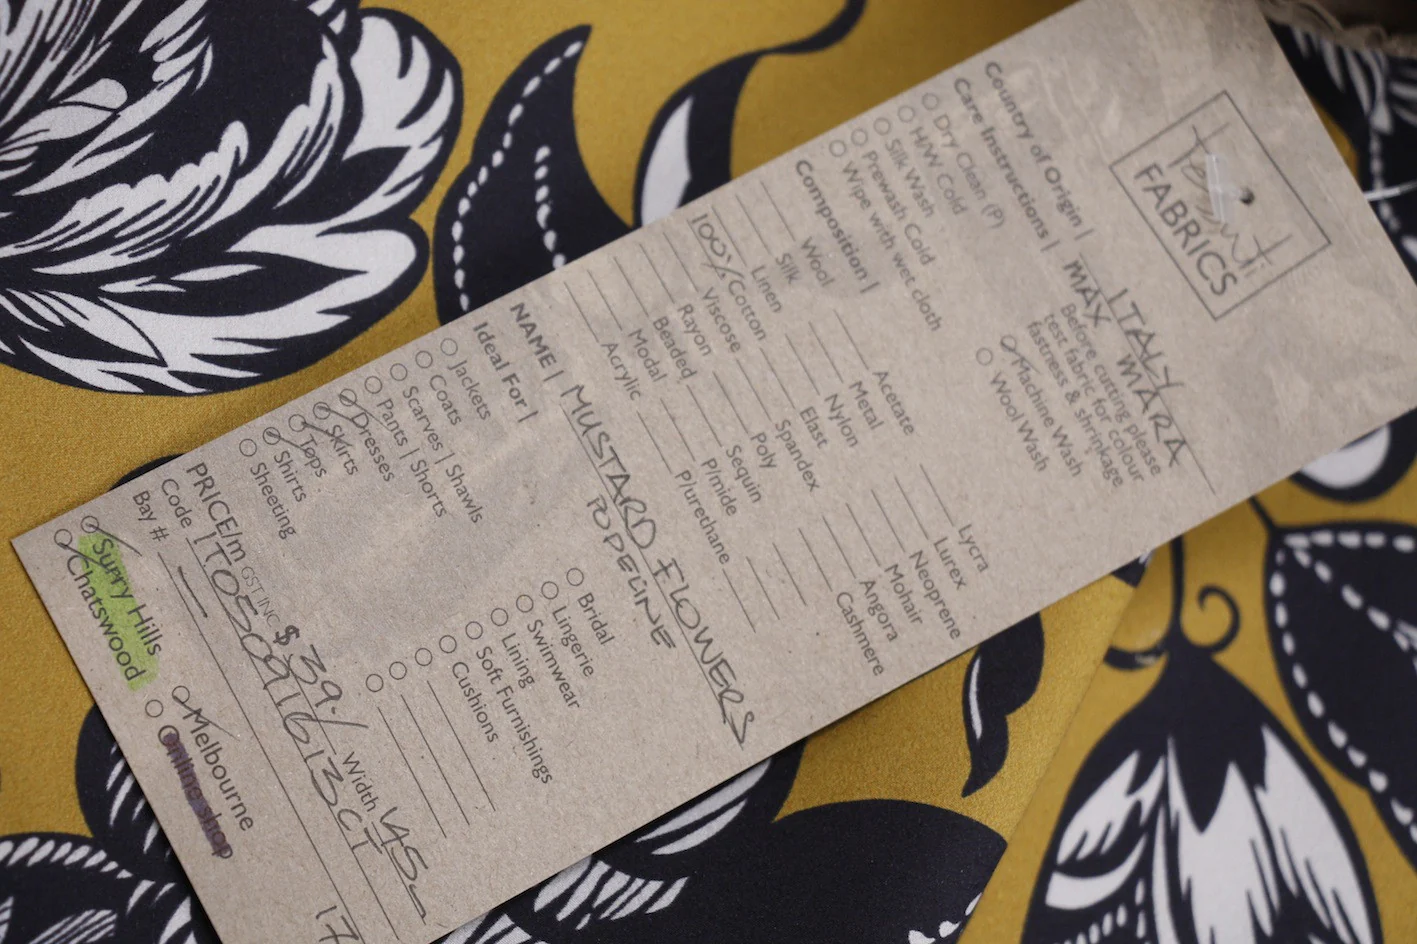 Tessuti
FABRICS
Country of Origin | ITALY
MAX MARA
Care Instructions | Before cutting please
test fabric for colour
fastress & shrinkage
Dry Clean (P)
H/W Cold
Silk Wash
Prewash Cold
Wipe with wet cloth
Machine Wash
Wool Wash
Composition |
Wool
Silk
Linen
100% Cotton
Viscose
Rayon
Beaded
Modal
Acrylic
Acetate
Metal
Nylon
Elast
Spandex
Poly
Sequin
P/mide
P/urethane
Lycra
Lurex
Neoprene
Mohair
Angora
Cashmere
NAME | MUSTARD FLOWERS
POPELINE
Ideal For |
Jackets
Coats
Scarves | Shawls
Pants | Shorts
Dresses
Skirts
Tops
Shirts
Sheeting
Bridal
Lingerie
Swimwear
Lining
Soft Furnishings
Cushions
PRICE/m GST INC $39./ Width 145
Code | T05091613CT
Bay #
Surry Hills
Chatswood
Melbourne
Online shop